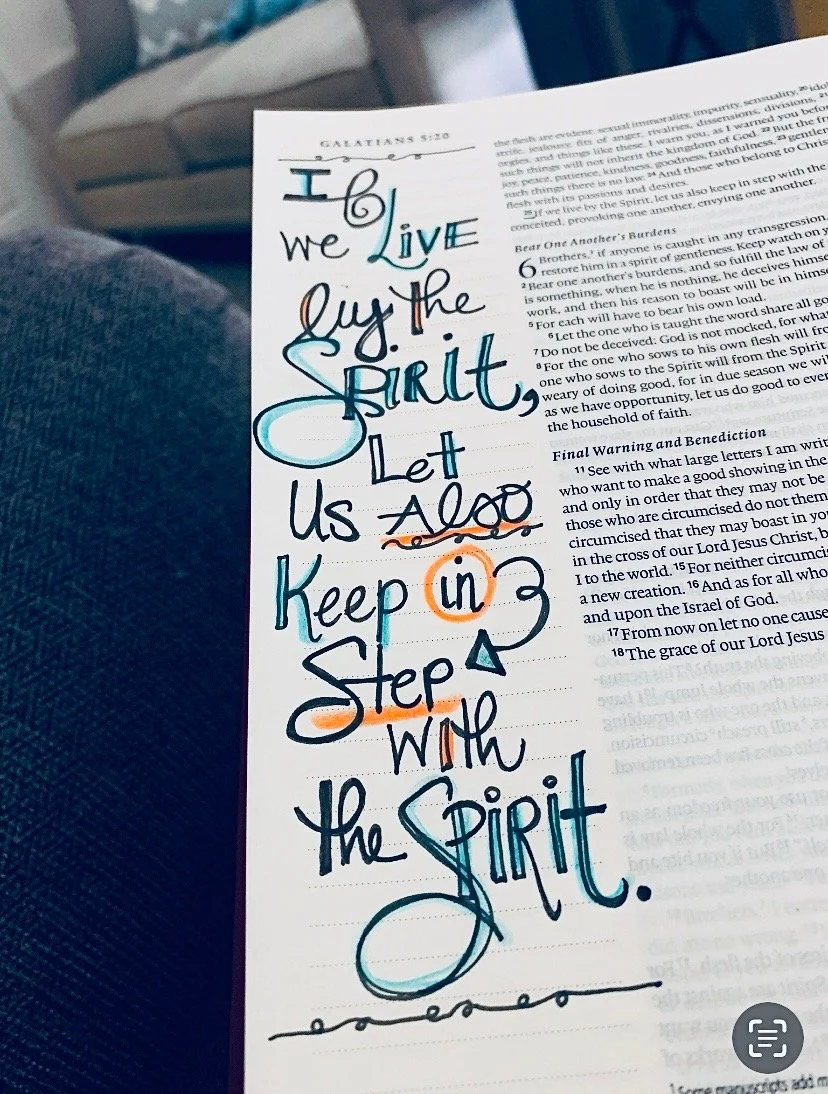 GALATIANS 5:20
If
we Live
by the
Spirit,
Let
Us Also
Keep in
Step
with
the Spirit.
the flesh are evident: sexual immorality, impurity, sensuality, 20 ido
strife, jealousy, fits of anger, rivalries, dissensions, divisions, 21
orgies, and things like these. I warn you, as I warned you befo
such things will not inherit the kingdom of God. 22 But the fr
joy, peace, patience, kindness, goodness, faithfulness, 23 gentler
such things there is no law. 24 And those who belong to Chris
flesh with its passions and desires.
25 If we live by the Spirit, let us also keep in step with the
conceited, provoking one another, envying one another.
Bear One Another's Burdens
6 Brothers, if anyone is caught in any transgression,
restore him in a spirit of gentleness. Keep watch on y
2 Bear one another's burdens, and so fulfill the law of
is something, when he is nothing, he deceives himse
work, and then his reason to boast will be in himse
5 For each will have to bear his own load.
6 Let the one who is taught the word share all go
7 Do not be deceived: God is not mocked, for what
8 For the one who sows to his own flesh will fro
one who sows to the Spirit will from the Spirit
weary of doing good, for in due season we wi
as we have opportunity, let us do good to ever
the household of faith.
Final Warning and Benediction
11 See with what large letters I am writ
who want to make a good showing in the
and only in order that they may not be
those who are circumcised do not them
circumcised that they may boast in yo
in the cross of our Lord Jesus Christ, b
I to the world. 15 For neither circumci
a new creation. 16 And as for all who
and upon the Israel of God.
17 From now on let no one cause
18 The grace of our Lord Jesus
1 Some manuscripts add m